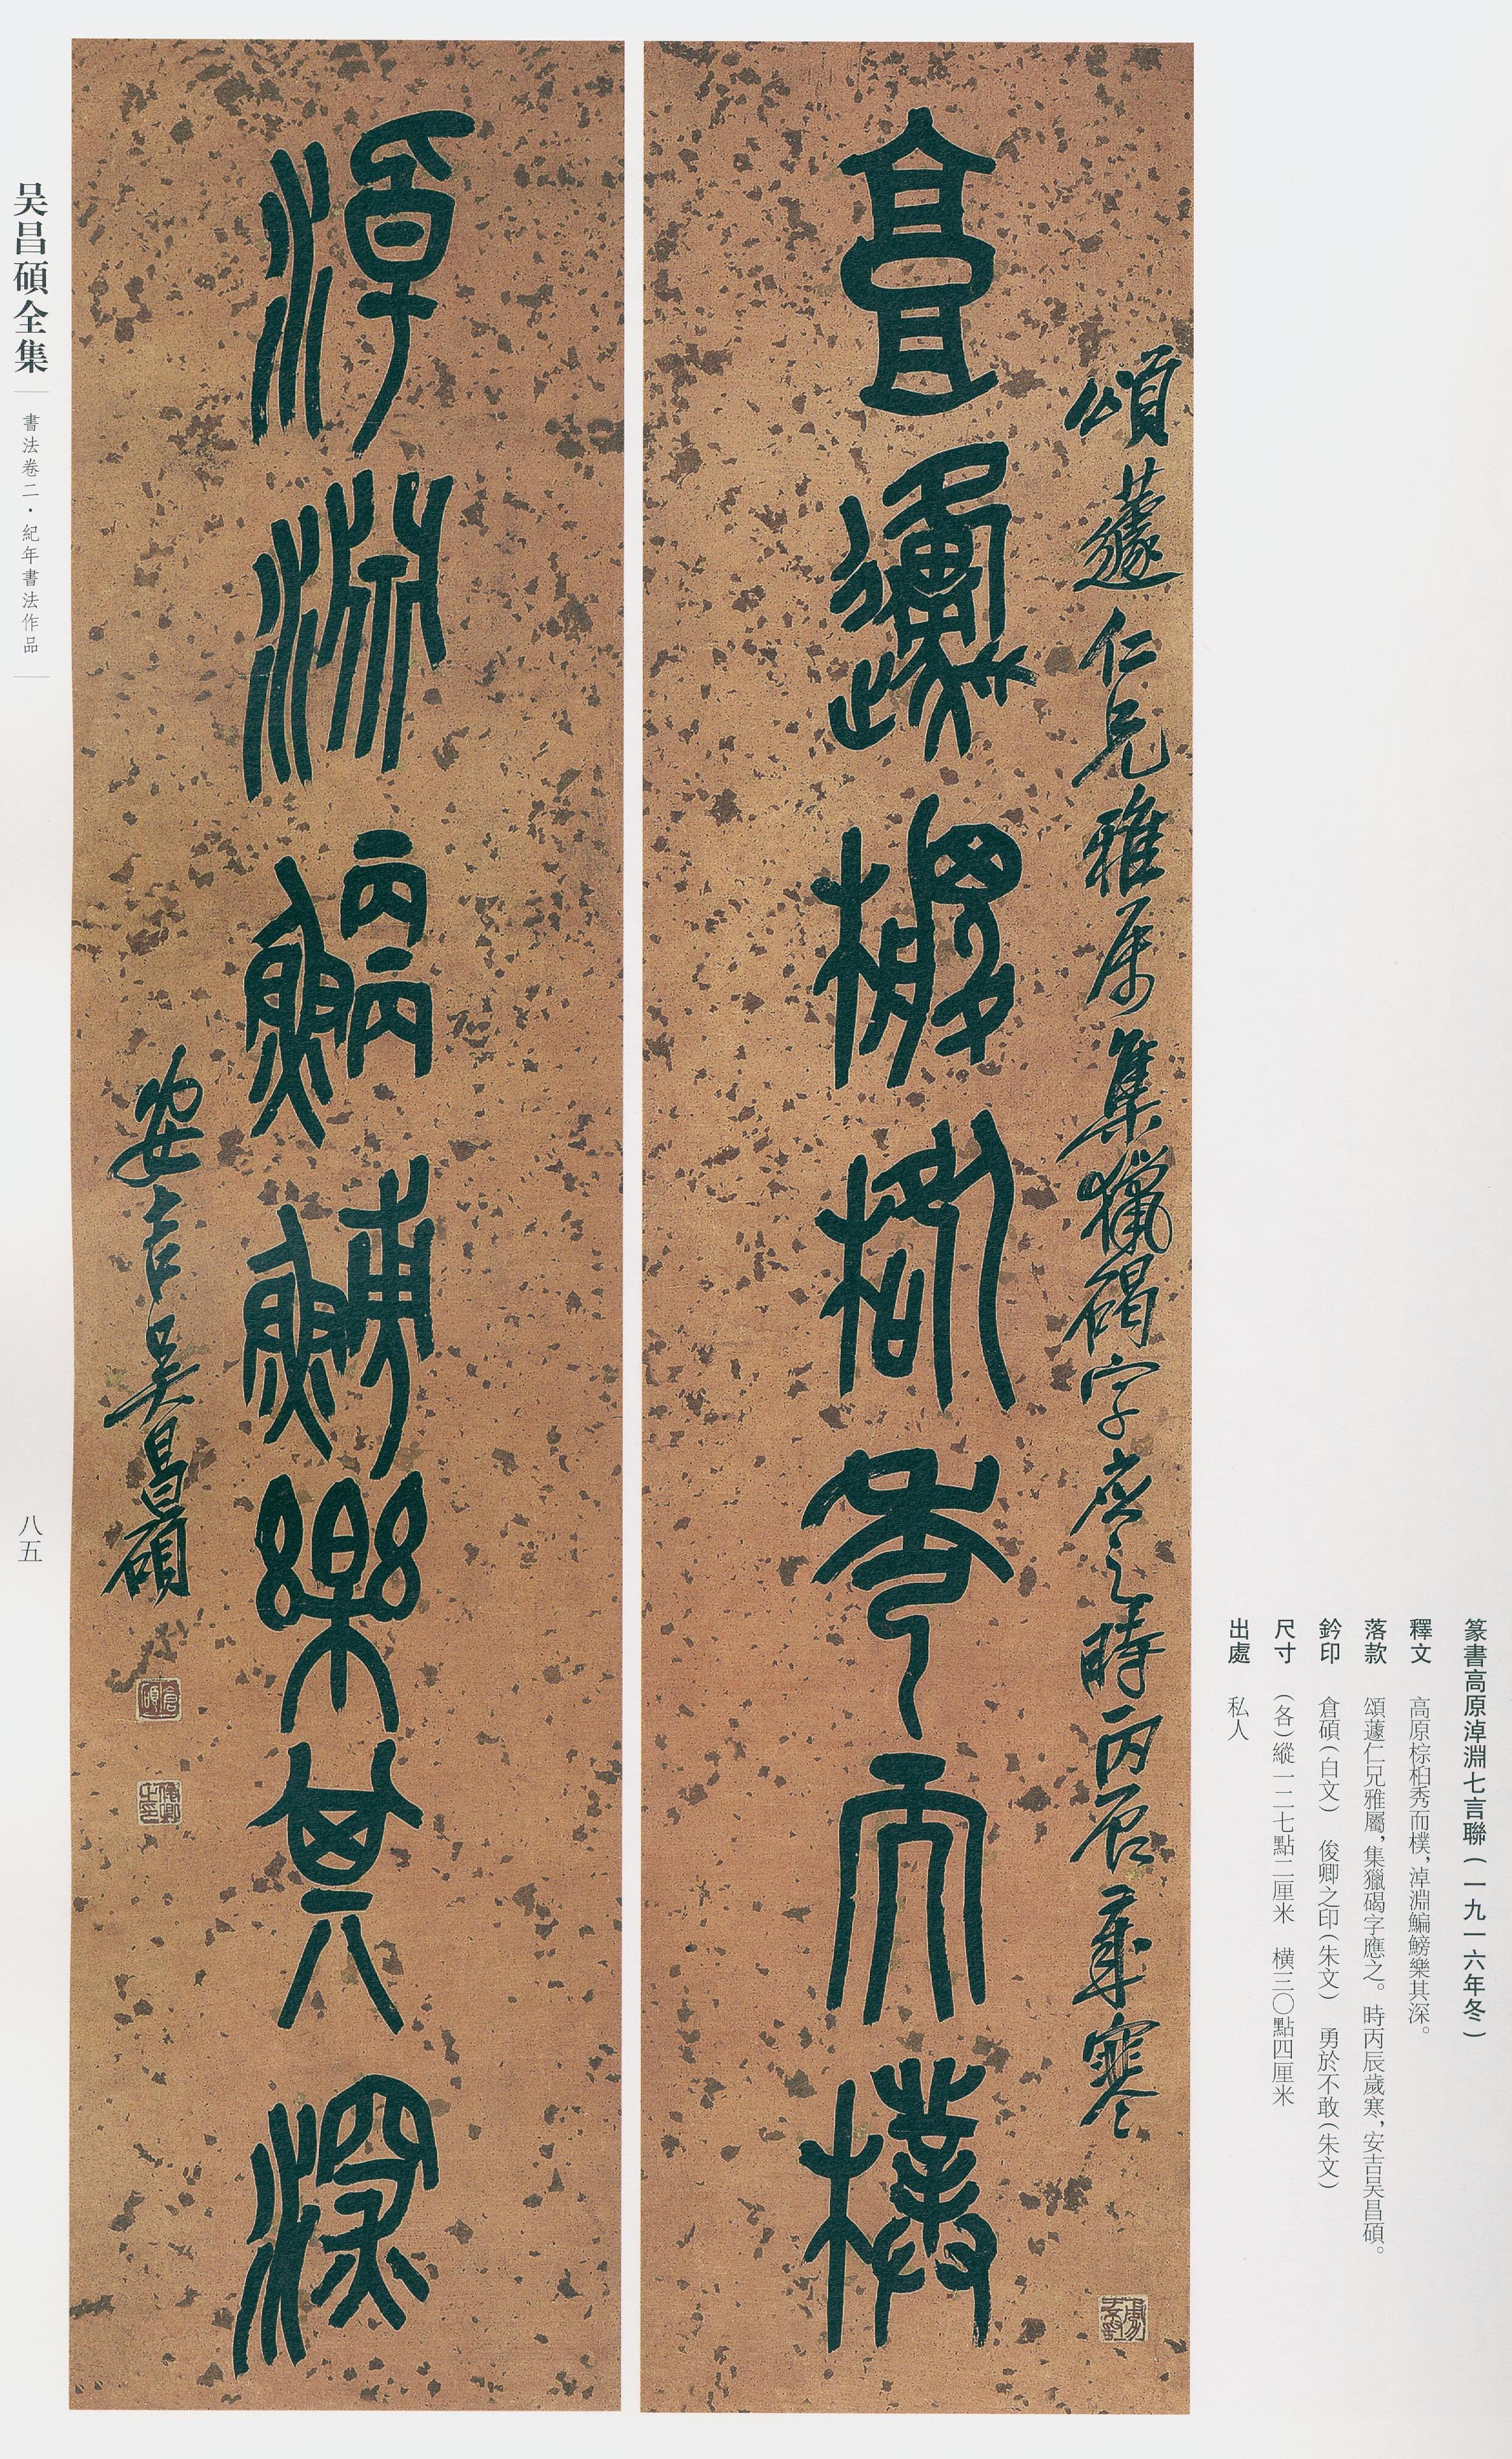 篆書高原淖淵七言聯(一九一六年冬)
釋文 高原棕柏秀而樸,淖淵鯿鰟樂其深。
落款 頌蘧仁兄雅屬,集獵碣字應之。時丙辰歲寒,安吉吴昌碩。
鈐印 倉碩(白文) 俊卿之印(朱文) 勇於不敢(朱文)
尺寸 (各)縱一二七點二厘米 横三〇點四厘米
出處 私人
頌蘧仁兄雅属集獵碣字應之時丙辰歲寒
勇於不敢
高原棕柏秀而樸
淖淵鯿鰟樂其深
安吉吴昌碩
倉碩
俊卿之印
吴昌碩全集
書法卷二·紀年書法作品
八五